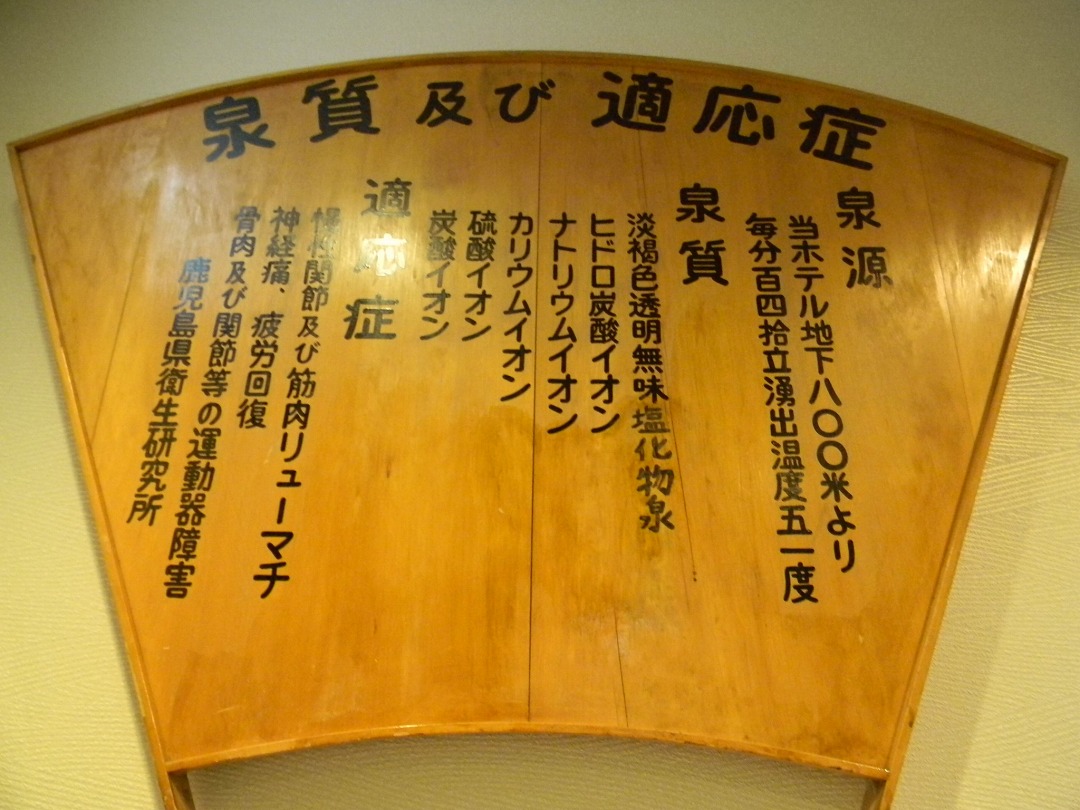 泉質及び適応症
泉源
当ホテル地下八〇〇米より
毎分百四拾立湧出温度五一度
泉質
淡褐色透明無味塩化物泉
ヒドロ炭酸イオン
ナトリウムイオン
カリウムイオン
硫酸イオン
炭酸イオン
適応症
慢性関節及び筋肉リューマチ
神経痛、疲労回復
骨肉及び関節等の運動器障害
鹿児島県衛生研究所